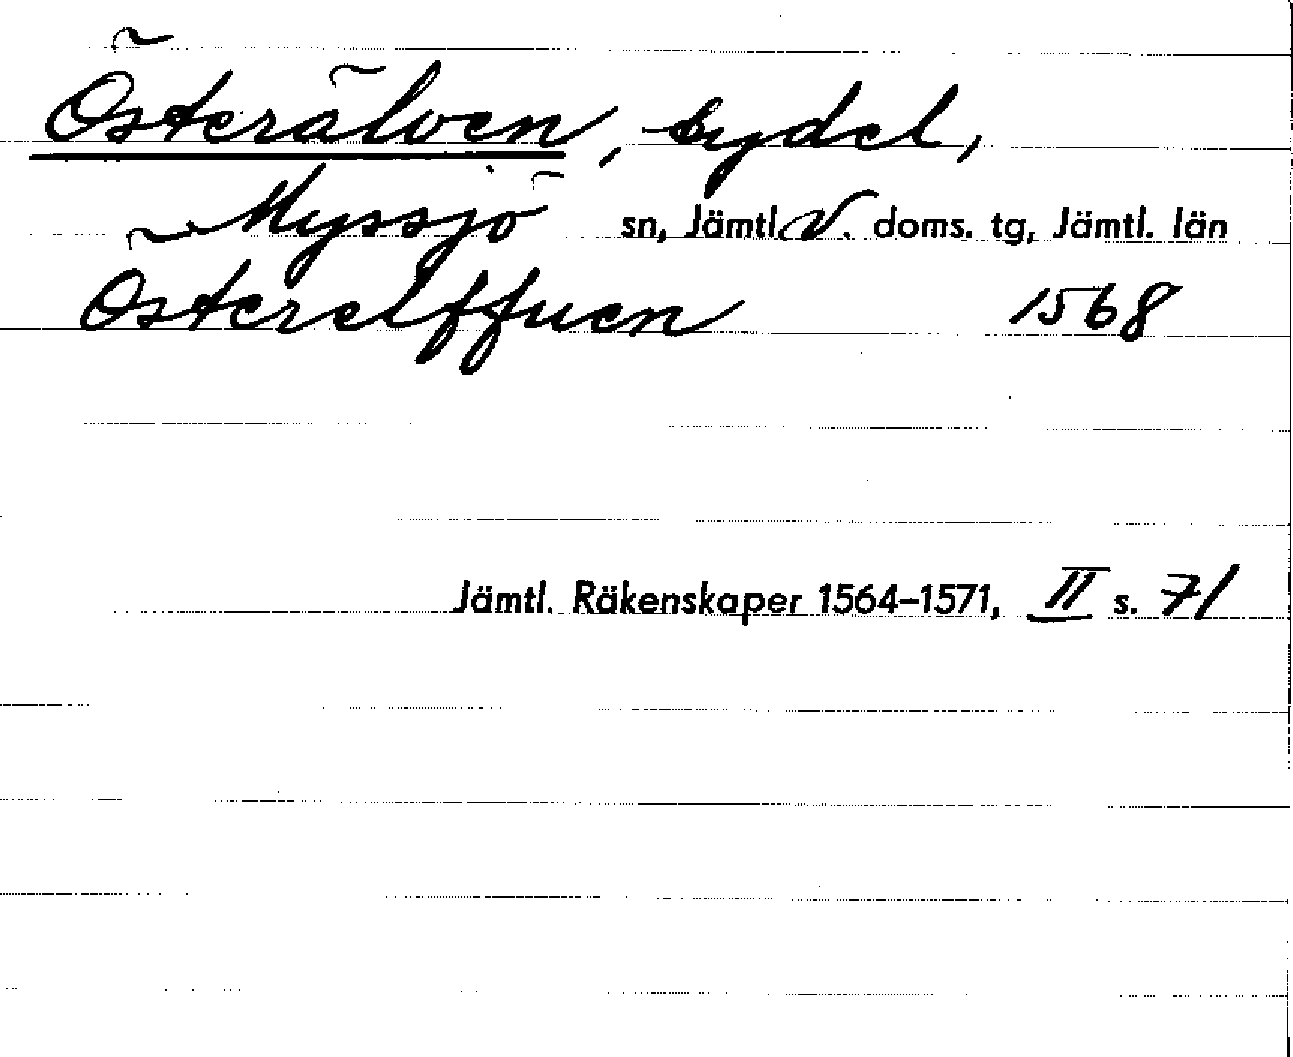 Österälven, bydel,
Myssjö sn, Jämtl. V. doms. tg, Jämtl. län
Österelffuen 1568
Jämtl. Räkenskaper 1564–1571, II s. 71